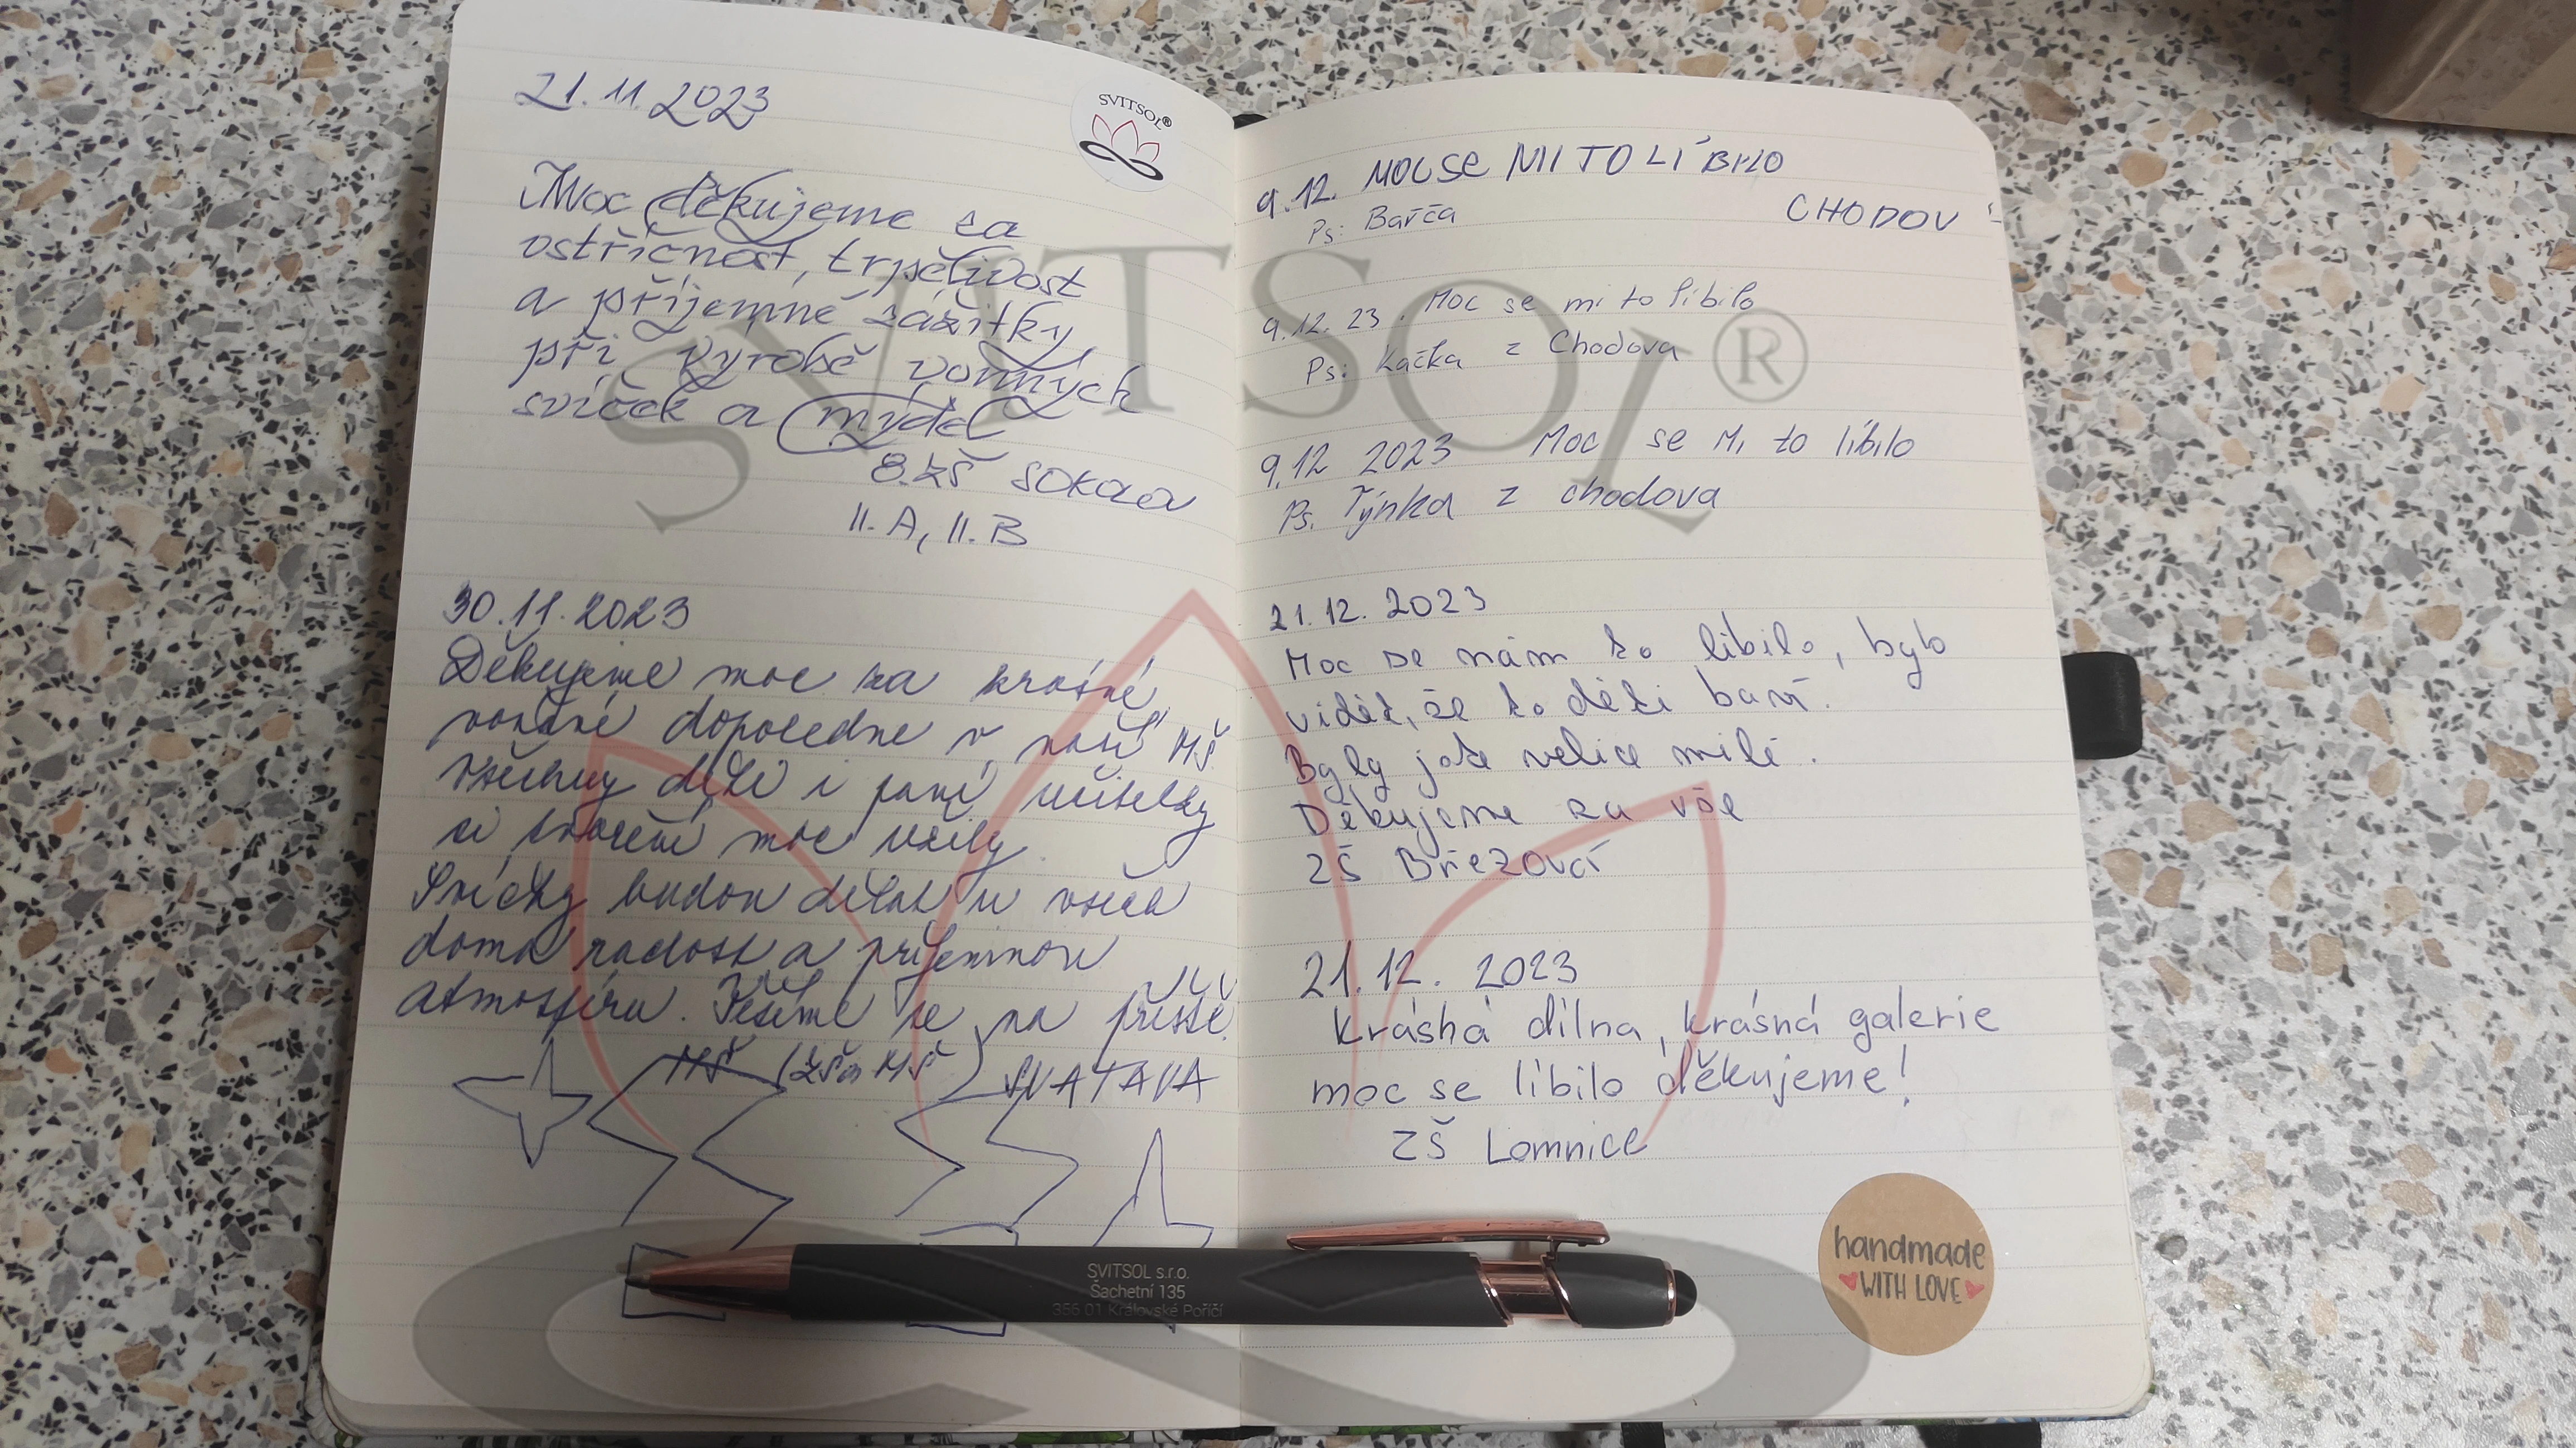 21.11.2023
SVITSOL®
Moc děkujeme za
vstřícnost, trpělivost
a příjemné zážitky
při výrobě vonných
svíček a mýdel
8.ZŠ Sokolov
II.A, II.B
30.11.2023
Děkujeme moc za krásné
voňavé dopoledne v naší MŠ.
Všechny děti i paní učitelky
si tvoření moc užily.
Svíčky budou dělat u všech
doma radost a příjemnou
atmosféru. Těšíme se na příště.
MŠ (ZŠ a MŠ SVATAVA
9.12. MOC SE MI TO LÍBILO
CHODOV
Ps: Barča
9.12.23. Moc se mi to líbilo
Ps: Kačka z Chodova
9.12 2023 Moc se Mi to líbilo
Ps. Týnka z chodova
21.12.2023
Moc se nám to líbilo, bylo
vidět, že to děti baví.
Byly jste velice milé.
Děkujeme za vše
ZŠ Březová
21.12. 2023
Krásná dílna, krásná galerie
moc se líbilo děkujeme!
ZŠ Lomnice
handmade
WITH LOVE
SVITSOL s.r.o.
Šachetní 135
356 01 Královské Poříčí
SVITSOL®